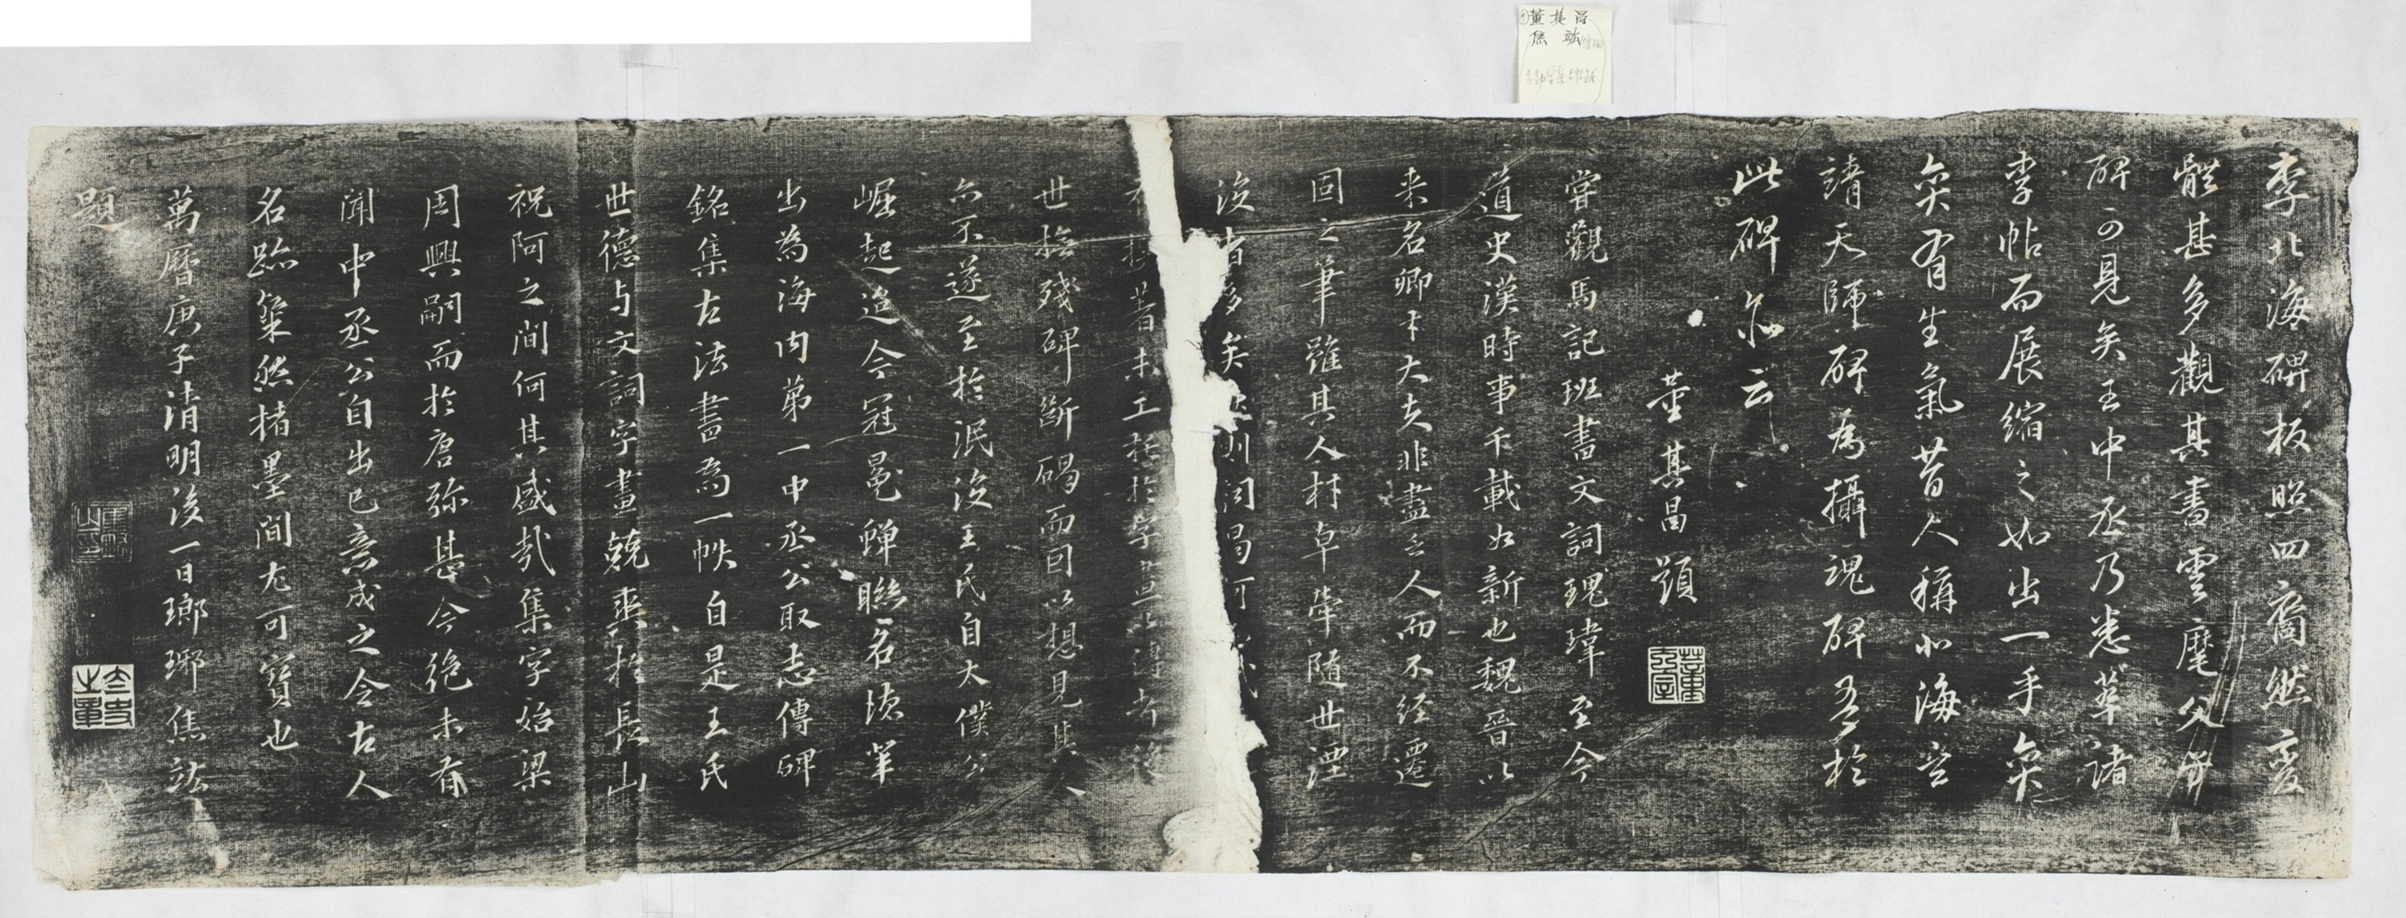 董其昌
焦竑
李北海碑板照四裔然變
體甚多觀其書雲麾父子
碑可見矣王中丞乃悉萃諸
李帖而展縮之如出一手奕
奕有生氣昔人稱北海書
請天師碑為攝魂碑多於
此碑亦云
董其昌題
嘗觀馬記班書文詞瑰瑋至今
道史漢時事千載如新也魏晉以
來名卿士大夫非盡乏人而不經遷
固之筆雖其人材卓犖隨世湮
沒者多矣
著未工
世於殘碑斷碣而回以想見其人
亦不遂至於泯沒王氏自太僕公
崛起迨今冠冕蟬聯名德輩
出為海內第一中丞公取志傳碑
銘集古法書為一帙自是王氏
世德与文詞字畫競爽於長山
祝阿之間何其盛哉集字始梁
周興嗣而於唐弥甚今絕未有
聞中丞公自出己意成之令古人
名跡粲然楮墨間尤可寶也
萬曆庚子清明後一日瑯琊焦竑
題